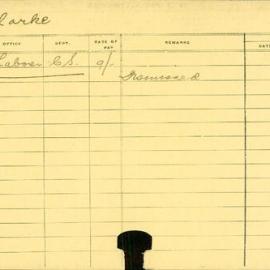 larke
OFFICE DEPT. RATE OF PAY REMARKS DAT
Labour C.S. 9/-